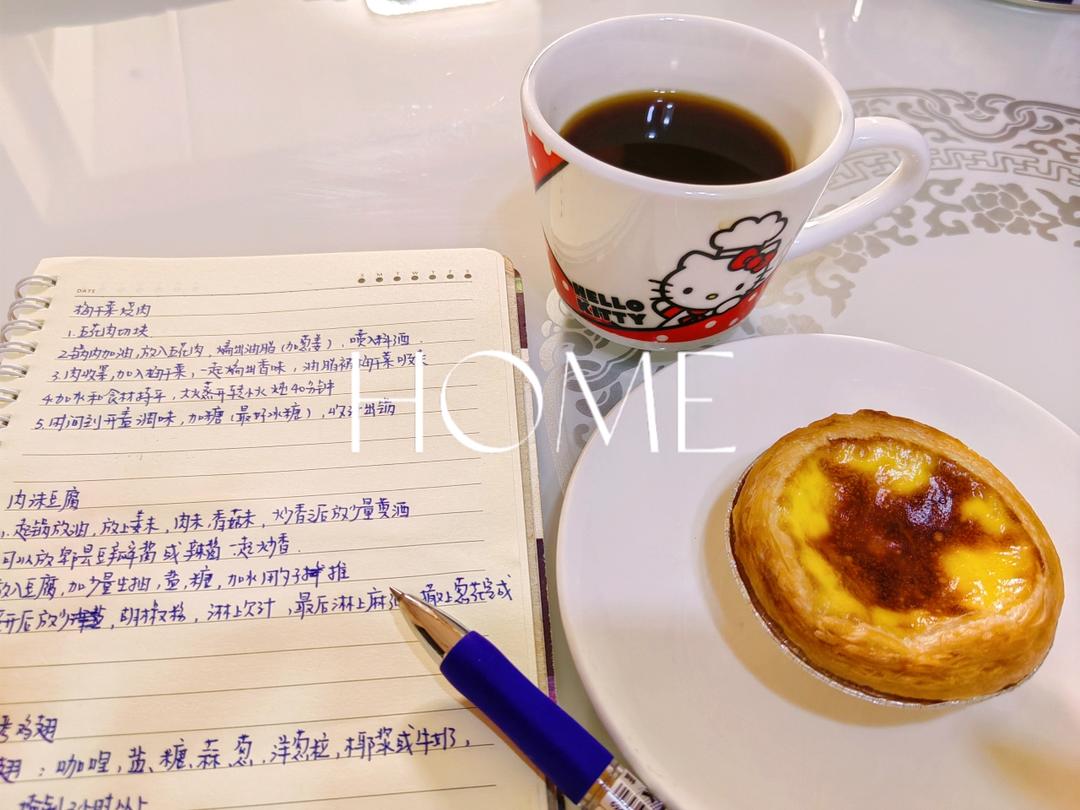 DATE
S M T W T F S
梅干菜烧肉
1.五花肉切块
2.锅内加油,放入五花肉,煸出油脂(加葱姜),喷料酒.
3.肉收紧,加入梅干菜,一起煸出香味,油脂被梅干菜吸走
4.加水和食材持平,大火蒸开转小火炖40分钟
5.时间到开盖调味,加糖(最好冰糖),收汁出锅
肉沫豆腐
1.起锅放油,放上姜末,肉末,香菇末,炒香后放少量黄酒
可以放郫县豆瓣酱或辣酱一起炒香.
放入豆腐,加少量生抽,盐,糖,加水用勺子推
开后放少,胡椒粉,淋上欠汁,最后淋上麻油 撒上葱花完成
烤鸡翅
翅:咖喱,盐、糖、蒜、葱、洋葱粒,椰浆或牛奶,
腌制2小时以上
HELLO
KITTY
HOME